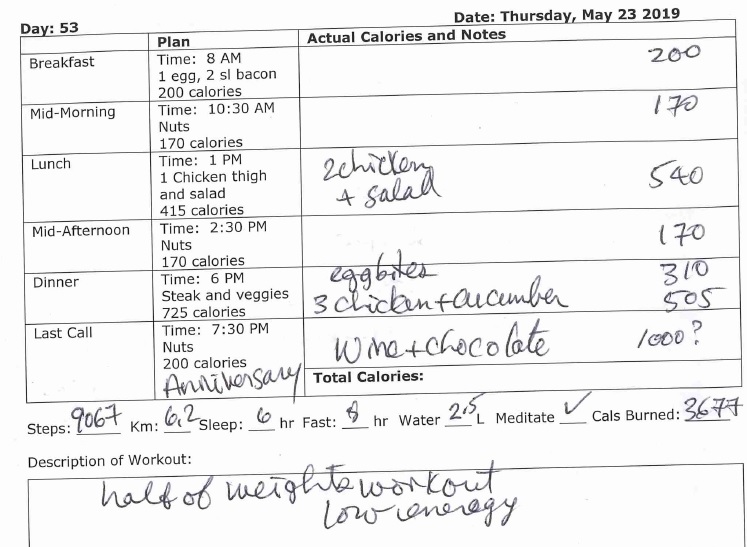 Day: 53
Date: Thursday, May 23 2019
Plan
Actual Calories and Notes
Breakfast
Time: 8 AM
1 egg, 2 sl bacon
200 calories
200
Mid-Morning
Time: 10:30 AM
Nuts
170 calories
170
Lunch
Time: 1 PM
1 Chicken thigh
and salad
415 calories
2 chicken
+ salad
540
Mid-Afternoon
Time: 2:30 PM
Nuts
170 calories
170
Dinner
Time: 6 PM
Steak and veggies
725 calories
eggbites 310
3 chicken + cucumber 505
Last Call
Time: 7:30 PM
Nuts
200 calories
Anniversary
Wine + chocolate 1000?
Total Calories:
Steps: 9067 Km: 6.2 Sleep: 6 hr Fast: 8 hr Water 2.5 L Meditate ✓ Cals Burned: 3677
Description of Workout:
half of weights workout
low eneragy